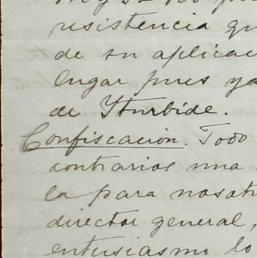 resistencia qu
de su aplicac
lugar pues ya
de Iturbide.
Confiscacion. Todo
contrarios una
la para nosotr
director general,
entusiasmo lo